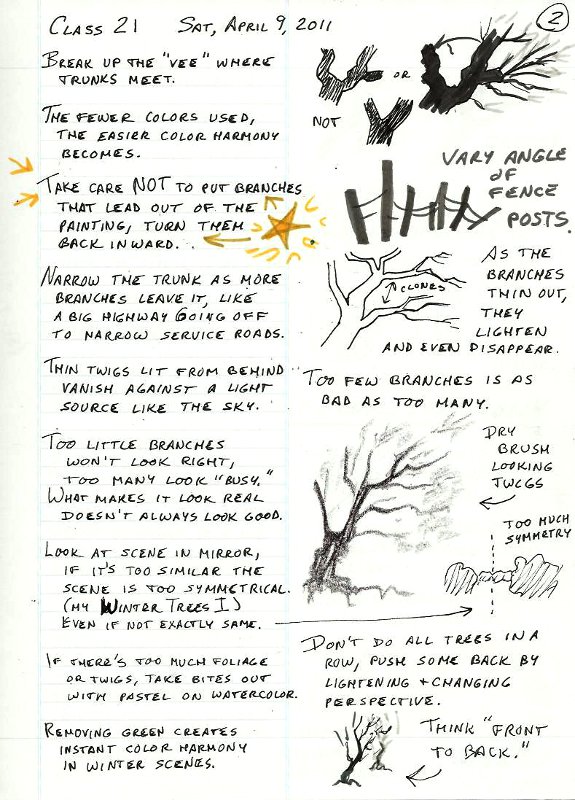 Class 21 Sat, April 9, 2011
2
Break up the "vee" where
trunks meet.
The fewer colors used,
the easier color harmony
becomes.
Take care NOT to put branches
that lead out of the
painting, turn them
back inward.
Narrow the trunk as more
branches leave it, like
a big highway going off
to narrow service roads.
Thin twigs lit from behind
vanish against a light
source like the sky.
Too little branches
won't look right,
too many look "busy."
What makes it look real
doesn't always look good.
Look at scene in mirror,
if it's too similar the
scene is too symmetrical.
(my Winter Trees I)
Even if not exactly same.
If there's too much foliage
or twigs, take bites out
with pastel on watercolor.
Removing green creates
instant color harmony
in winter scenes.
or
not
Vary angle
of
fence
posts.
clones
As the
branches
thin out,
they
lighten
and even disappear.
Too few branches is as
bad as too many.
Dry
brush
looking
twigs
Too much
symmetry
Don't do all trees in a
row, push some back by
lightening + changing
perspective.
Think "front
to back."